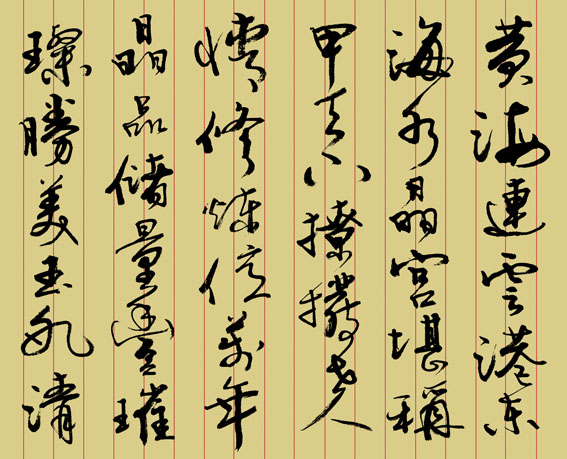 黄海連雲港东
海水晶宫堪稱
甲天下撩撥人
情修煉億萬年
晶品储量豐璀
璨勝美玉肌清